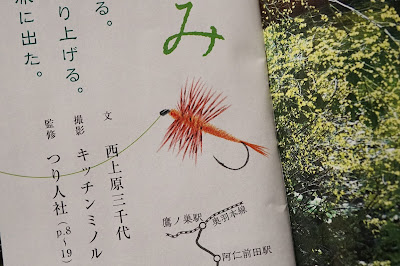 み
る。
り上げる。
に出た。
文 西上原三千代
撮影 キッチンミノル
監修 つり人社(p.8〜19)
鷹ノ巣駅
奥羽本線
阿仁前田駅